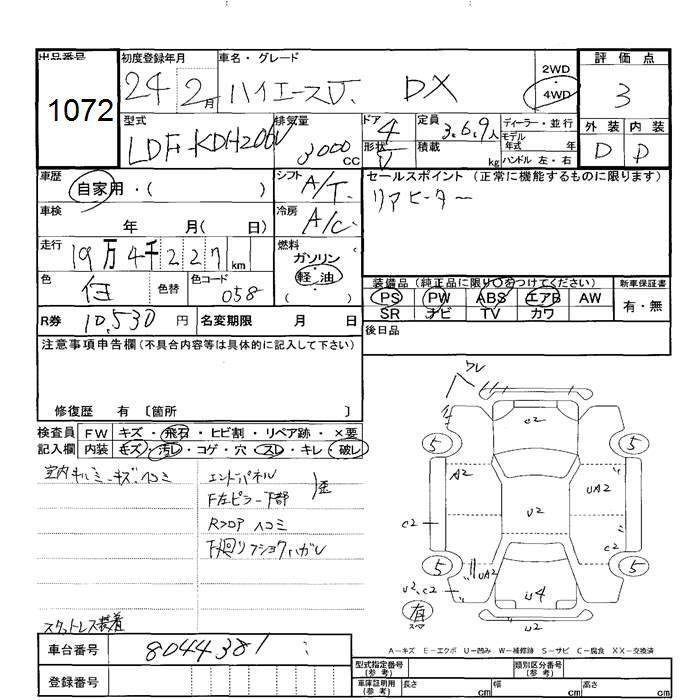 出品番号
1072
初度登録年月
24 2月
車名・グレード
ハイエースV. DX
2WD
4WD
評価点
3
外装 内装
D D
型式
LDF-KDH206V
排気量
3000 CC
ドア 4
形状 V
定員 3.6.9人
積載 kg
ディーラー・並行
モデル年式 年
ハンドル 左・右
車歴
自家用・( )
シフト A/T.
セールスポイント (正常に機能するものに限ります)
リアヒーター
車検
年 月( 日)
冷房 A/C.
走行
19万4千227km
燃料
ガソリン
軽・油
( )
色
色替
色コード 058
装備品 (純正品に限り○をつけてください)
PS PW ABS エアB AW
SR ナビ TV カワ
新車保証書
有・無
R券 10,530円
名変期限 月 日
後日品
注意事項申告欄 (不具合内容等は具体的に記入して下さい)
修復歴 有 〔箇所 〕
検査員記入欄
FW キズ・飛石・ヒビ割・リペア跡・×要
内装 キズ・汚レ・コゲ・穴・スレ・キレ・破レ
エンドパネル
F左ピラー下部
Rフロア ヘコミ
スタットレス装着
ワレ
C2
5 5
A2 UA2
U2
C2 C2
5 5
UA2
U2.C2 U4
有
スペア
U2
A-キズ E-エクボ U-凹み W-補修跡 S-サビ C-腐食 XX-交換済
車台番号 8044381
登録番号
型式指定番号 (参考)
類別区分番号 (参考)
車庫証明用 (参考) 長さ cm 幅 cm 高さ cm